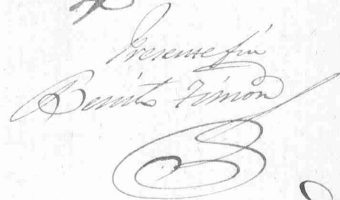 Presente fui
Benito Timon